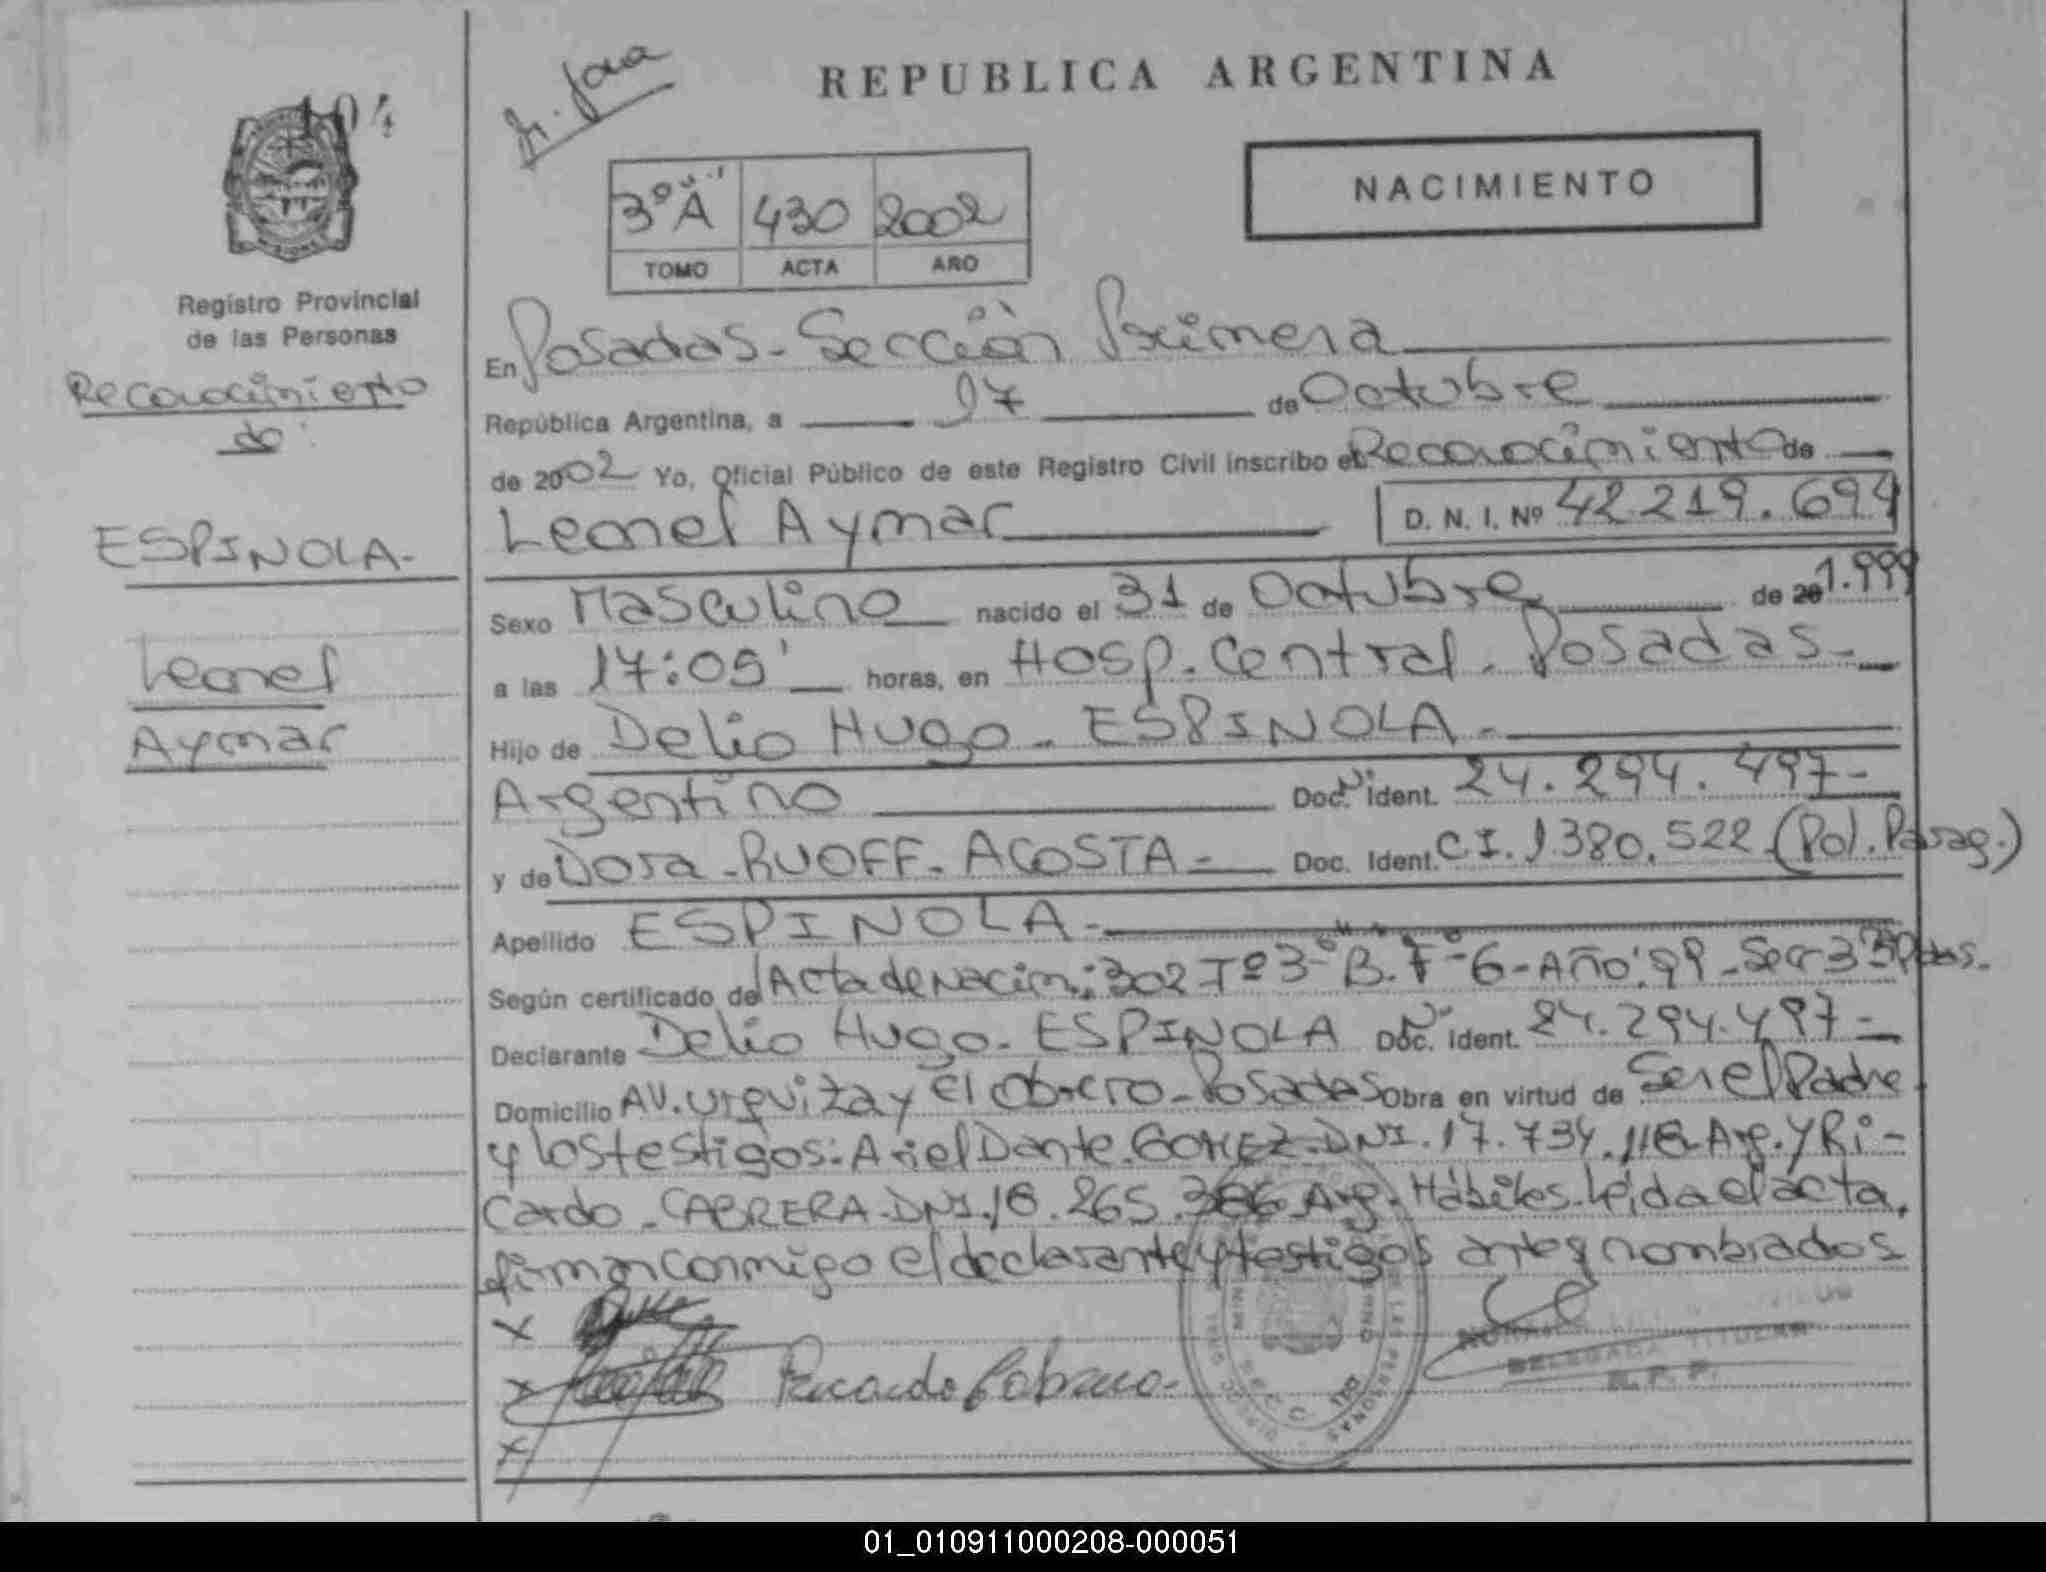 104
REPUBLICA ARGENTINA
NACIMIENTO
3º "A" 430 2002
TOMO ACTA AÑO
Registro Provincial
de las Personas
Reconocimiento
de:
ESPINOLA-
Leonel
Aymar
En Posadas - Sección Primera
República Argentina, a 17 de Octubre
de 2002 Yo, Oficial Público de este Registro Civil inscribo el Reconocimiento de
Leonel Aymar D. N. I. Nº 42.219.694
Sexo Masculino nacido el 31 de Octubre de 20 1.999
a las 17:05' horas, en Hosp. Central - Posadas -
Hijo de Delio Hugo - ESPINOLA -
Argentino Doc. Nº Ident. 24.294.497-
y de Dora - RUOFF - ACOSTA - Doc. Ident. C.I. 1380.522 (Pol. Parag.)
Apellido ESPINOLA -
Según certificado del Acta de Nacim.: 302 Tº 3º "B". Fº 6 - Año: 99 - Secc 3ª Pdas.
Declarante Delio Hugo - ESPINOLA Doc. Nº Ident. 24.294.497 -
Domicilio AV. Urquiza y El Obrero - Posadas Obra en virtud de Ser el Padre
y los testigos: Ariel Dante GOMEZ - DNI. 17.734.118 - Arg. y Ri-
cardo - CABRERA - DNI. 18.265.386 Arg. Hábiles. Leída el acta,
firman conmigo el declarante y testigos antes nombrados
X
X Ricardo Cabrera
X
DELEGADA TITULAR
R. P. P.
01_010911000208-000051